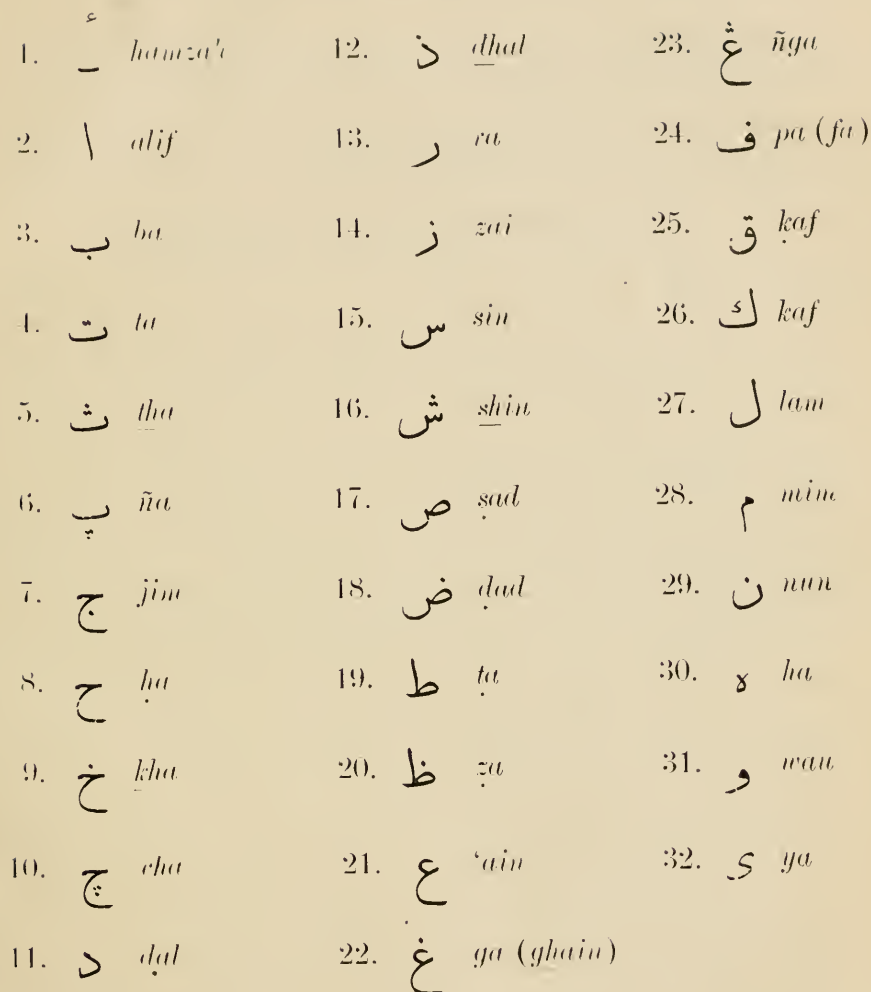 1. ـٔ hamza'i
2. ا alif
3. ب ba
4. ت ta
5. ث t͟ha
6. پ ña
7. ج jim
8. ح ḥa
9. خ k͟ha
10. چ cha
11. د ḍal
12. ذ d͟hal
13. ر ra
14. ز zai
15. س sin
16. ش s͟hin
17. ص ṣad
18. ض ḍad
19. ط ṭa
20. ظ ẓa
21. ع ‘ain
22. غ ga (ghain)
23. ڠ ñga
24. ف pa (fa)
25. ق ḳaf
26. ك kaf
27. ل lam
28. م mim
29. ن nun
30. ه ha
31. و wau
32. ى ya